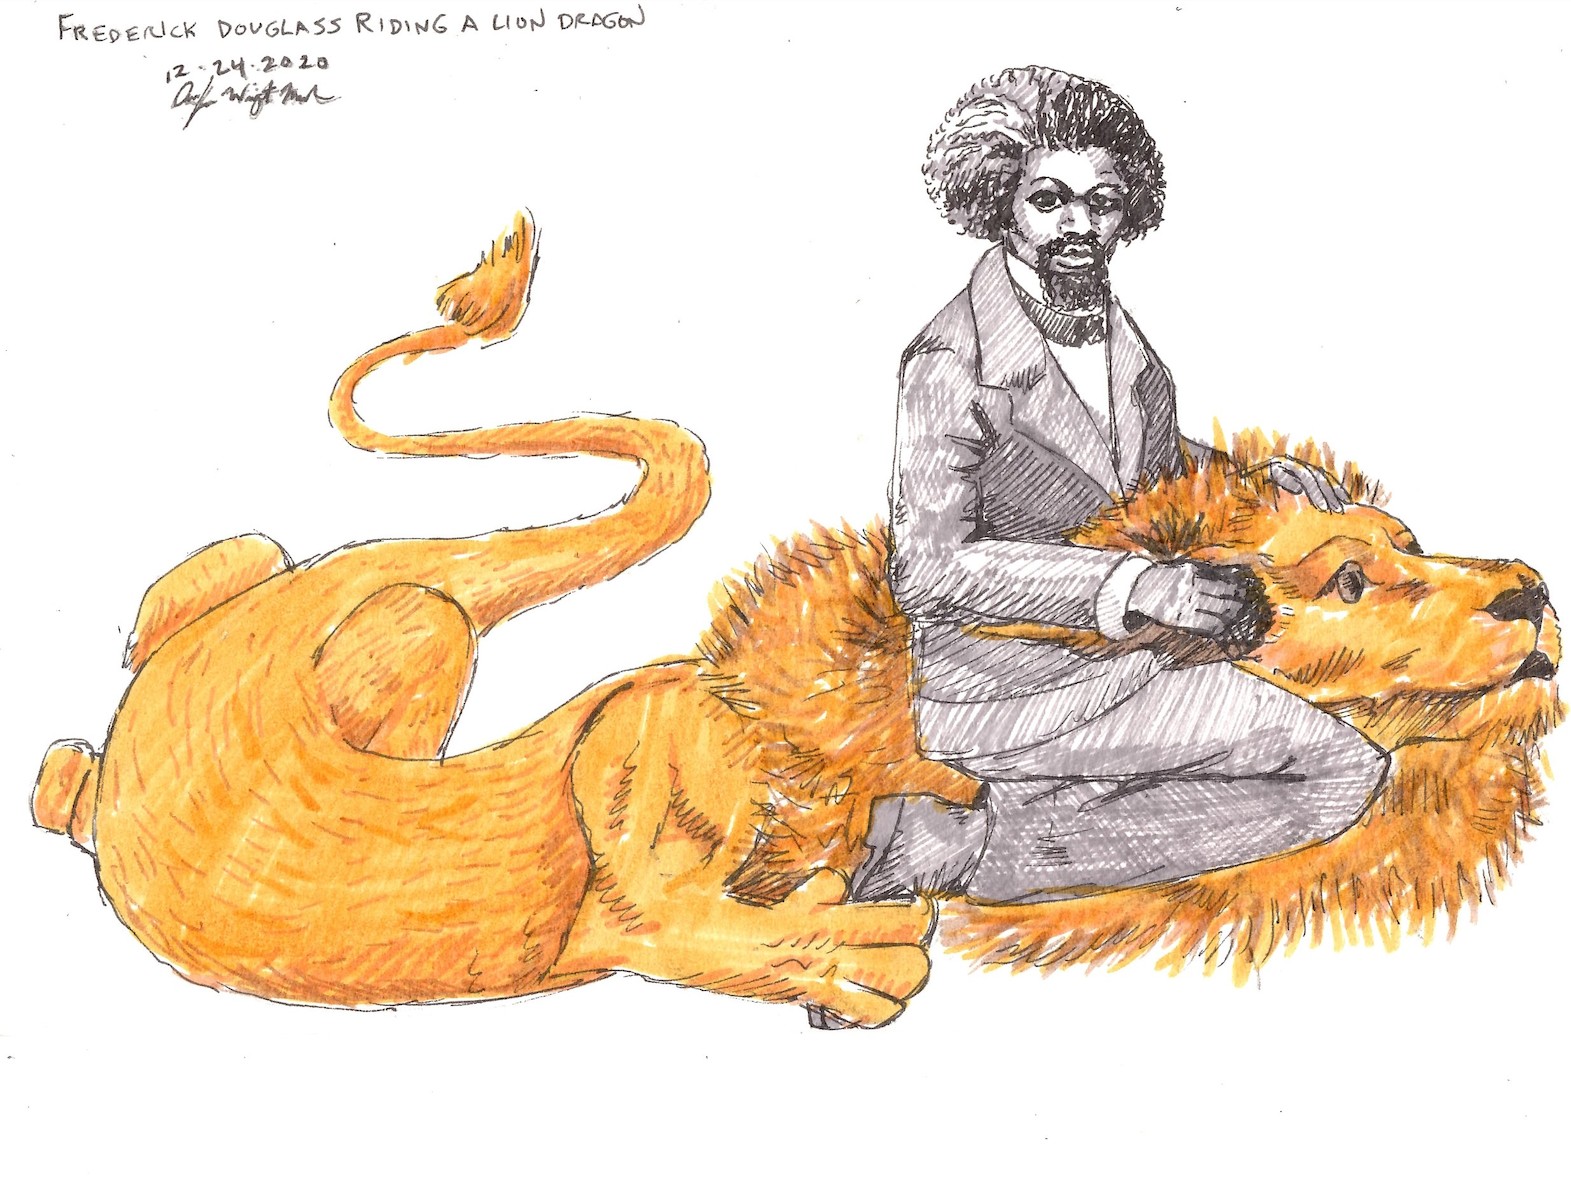 FREDERICK DOUGLASS RIDING A LION DRAGON
12·24·2020
Wright